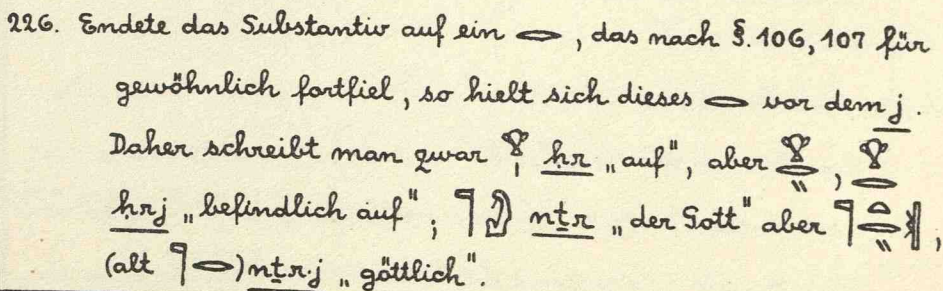 226. Endete das Substantiv auf ein 𓂋, das nach §. 106, 107 für
gewöhnlich fortfiel, so hielt sich dieses 𓂋 vor dem j.
Daher schreibt man zwar 𓁷𓏤 ḥr „auf“, aber 𓁷𓂋𓏭, 𓁷𓂋
ḥrj „befindlich auf“; 𓊹𓀭 nṯr „der Gott“ aber 𓊹𓏏𓂋𓏭𓏛,
(alt 𓊹𓂋) nṯr.j „göttlich“.